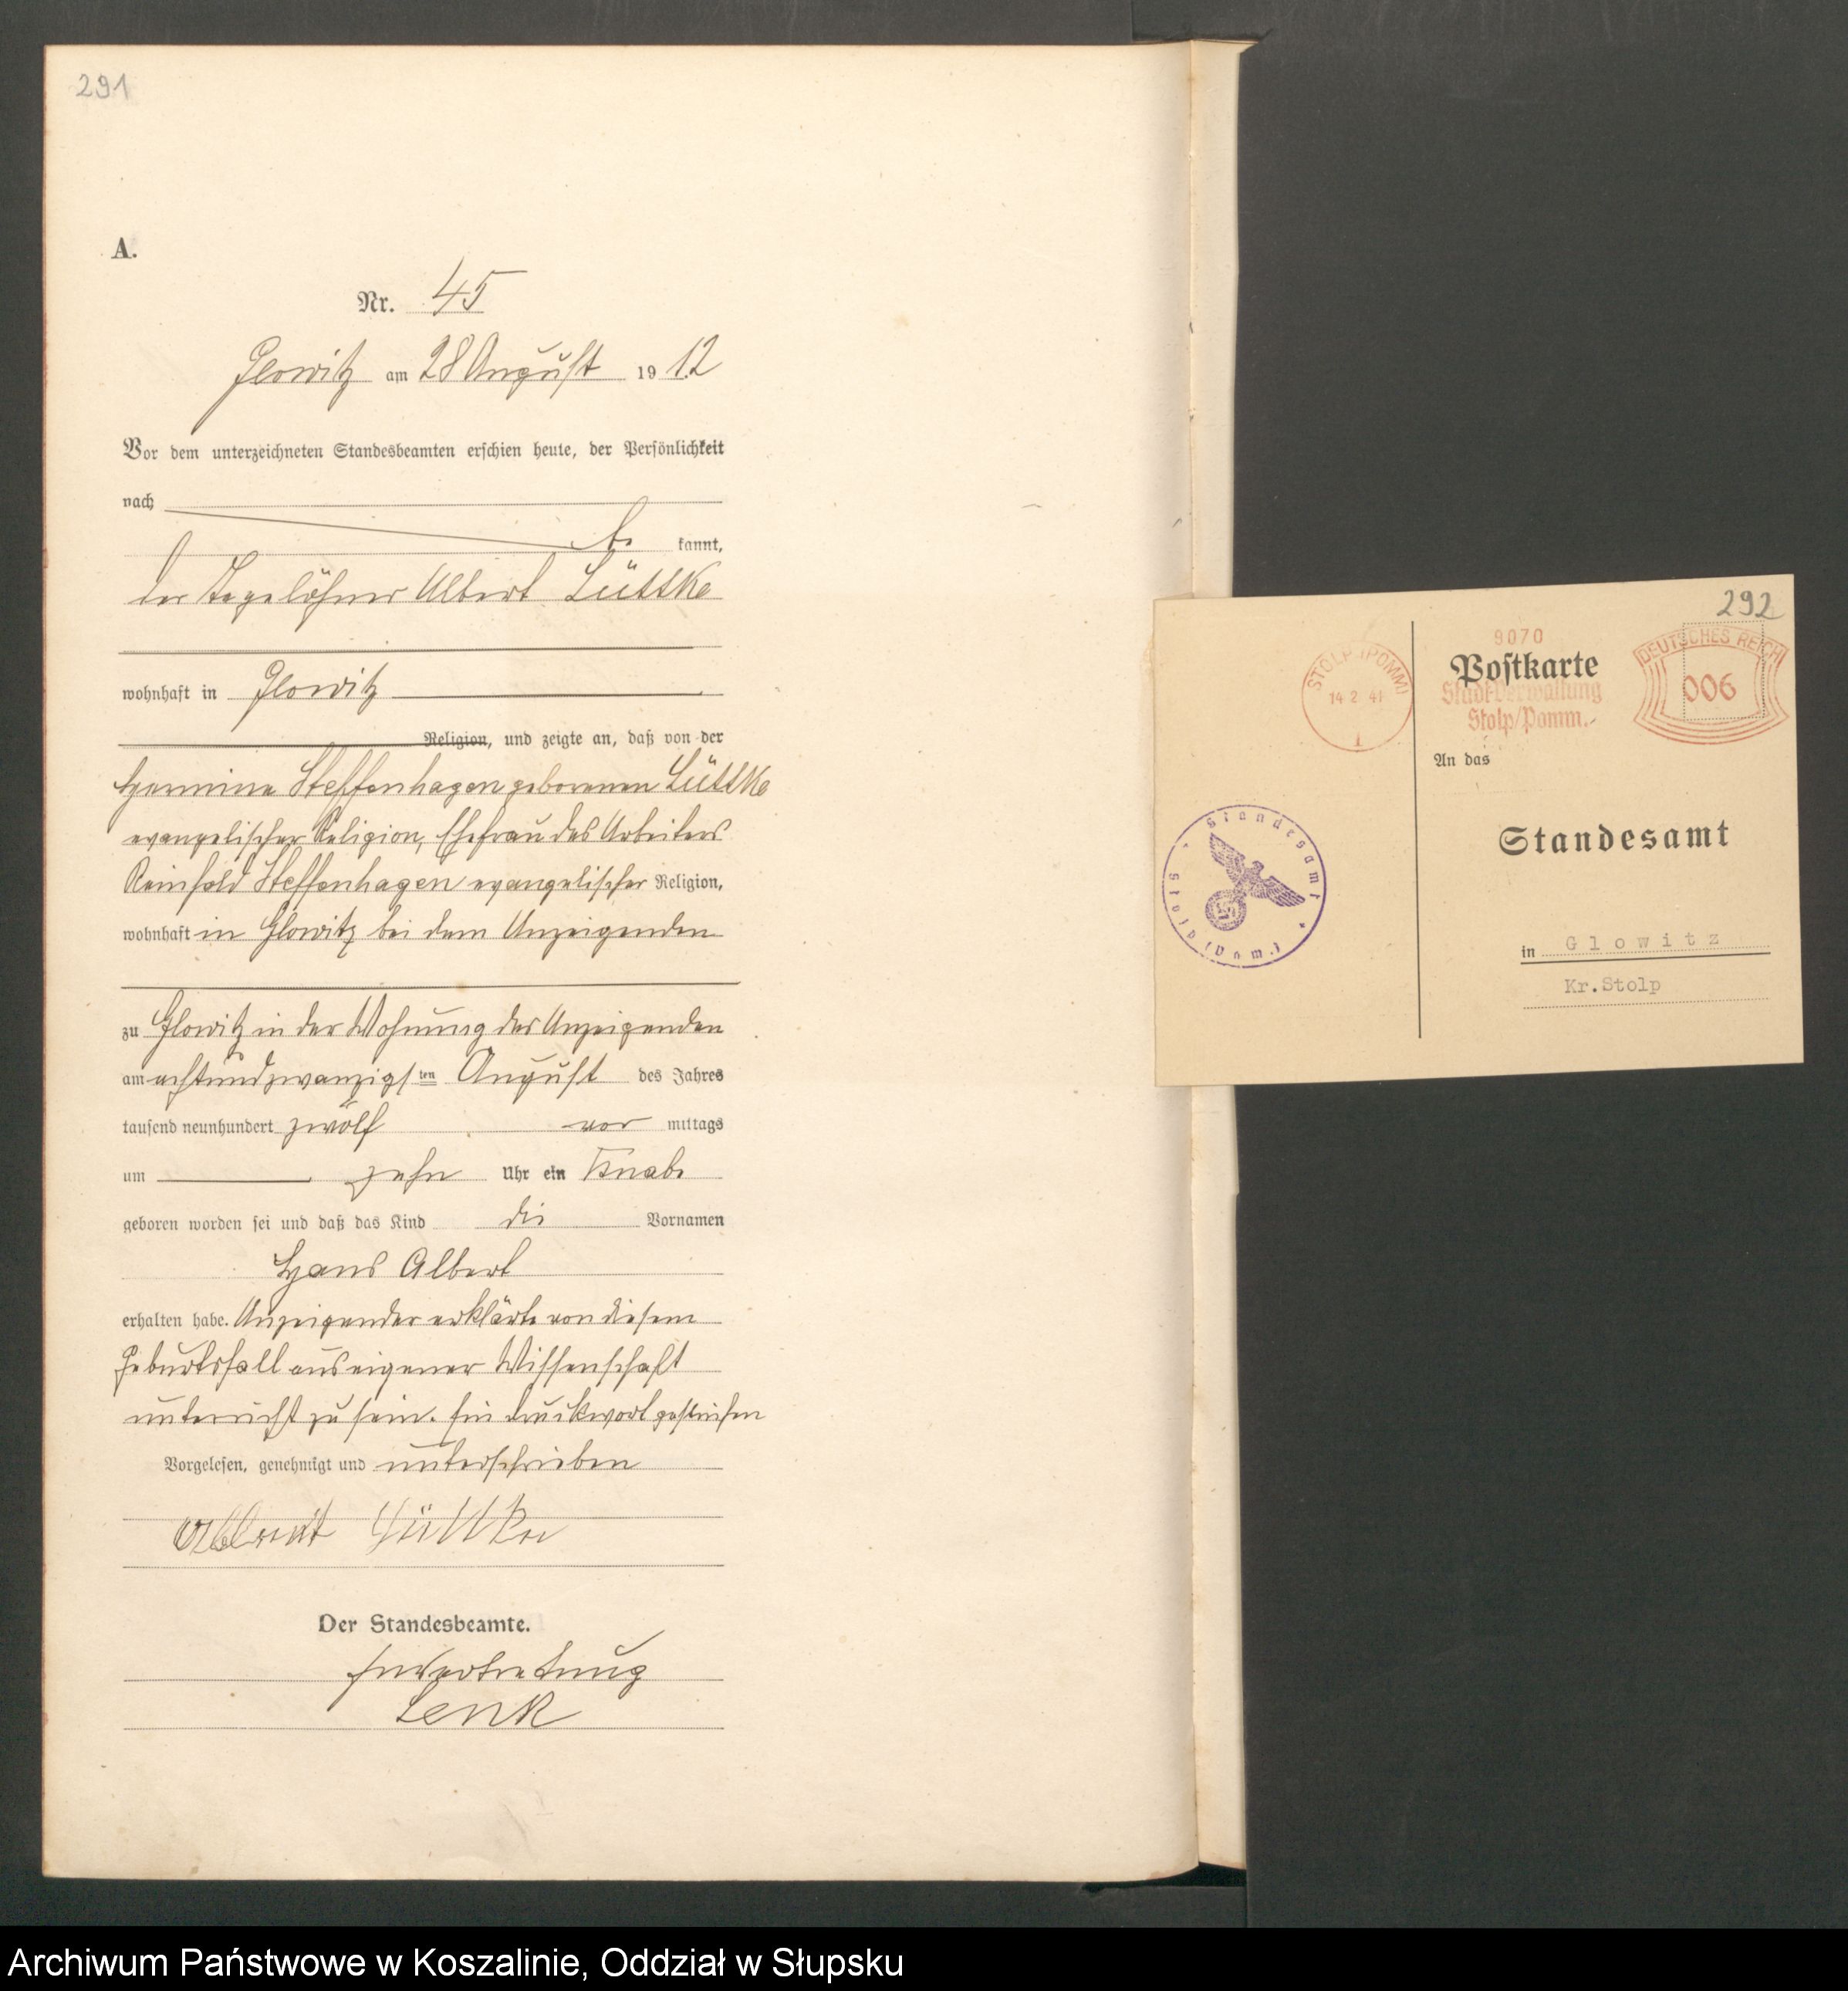 291
A.
Nr. 45
Glowitz am 28 August 1912
Vor dem unterzeichneten Standesbeamten erschien heute, der Persönlichkeit
nach
be kannt,
der Tagelöhner Albert Lüttke
wohnhaft in Glowitz
Religion, und zeigte an, daß von der
Hermine Steffenhagen geborenen Lüttke
evangelischer Religion, Ehefrau des Arbeiters
Reinhold Steffenhagen evangelischer Religion,
wohnhaft in Glowitz bei dem Anzeigenden
zu Glowitz in der Wohnung des Anzeigenden
am achtundzwanzigsten August des Jahres
tausend neunhundert zwölf vor mittags
um zehn Uhr ein Knabe
geboren worden sei und daß das Kind die Vornamen
Hans Albert
erhalten habe. Anzeigender erklärte von diesem
Geburtsfall aus eigener Wissenschaft
unterricht zu sein. Ein Druckwort gestrichen
Vorgelesen, genehmigt und unterschrieben
Albert Lüttke
Der Standesbeamte.
In Vertretung
Lenk
292
9070
Postkarte
Stadt-Verwaltung
Stolp/Pomm.
STOLP (POMM)
14 2 41
1
DEUTSCHES REICH
006
An das
Standesamt
in Glowitz
Kr.Stolp
Standesamt
Stolp (Pom.)
Archiwum Państwowe w Koszalinie, Oddział w Słupsku